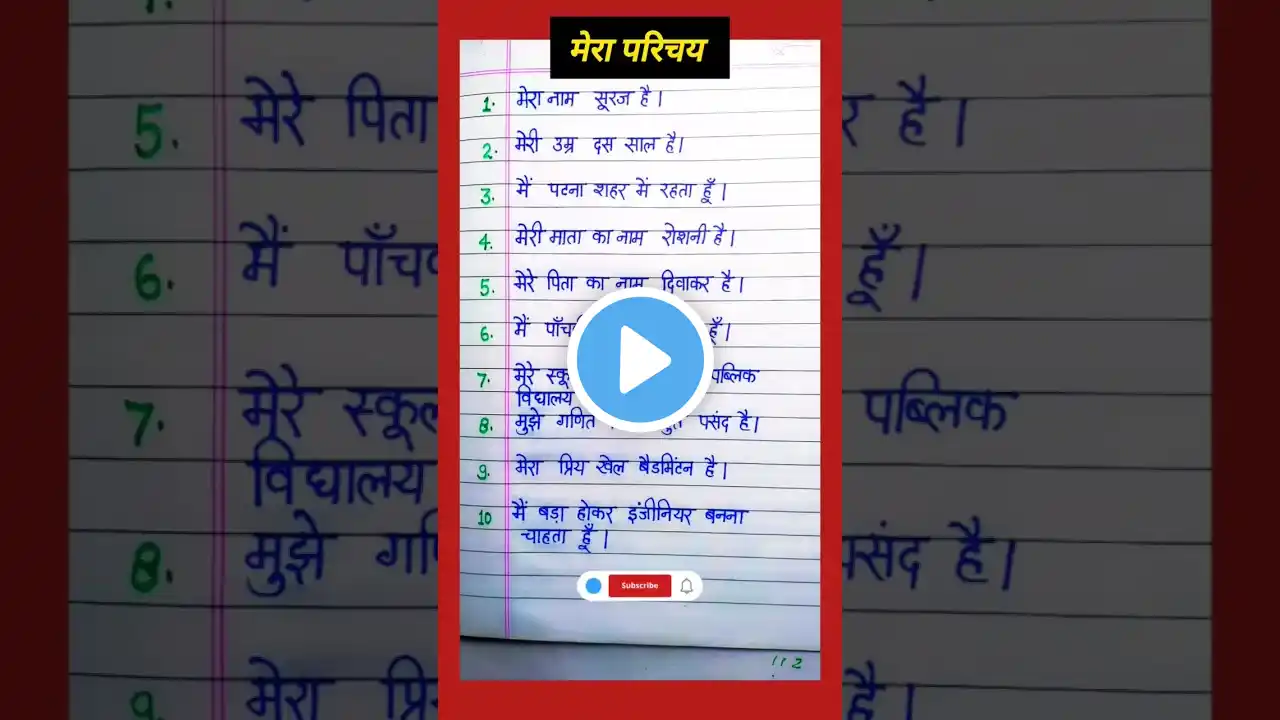 मेरा परिचय
1. मेरा नाम सूरज है।
2. मेरी उम्र दस साल है।
3. मैं पटना शहर में रहता हूँ।
4. मेरी माता का नाम रोशनी है।
5. मेरे पिता का नाम दिवाकर है।
6. मैं हूँ।
7. मेरे पब्लिक
विद्यालय
8. मुझे गणित पसंद है।
9. मेरा प्रिय खेल बैडमिंटन है।
10 मैं बड़ा होकर इंजीनियर बनना
चाहता हूँ।
Subscribe
5. मेरे पिता है।
6. मैं हूँ।
7. मेरे पब्लिक
विद्यालय
8. मुझे पसंद है।
9. मेरा है।